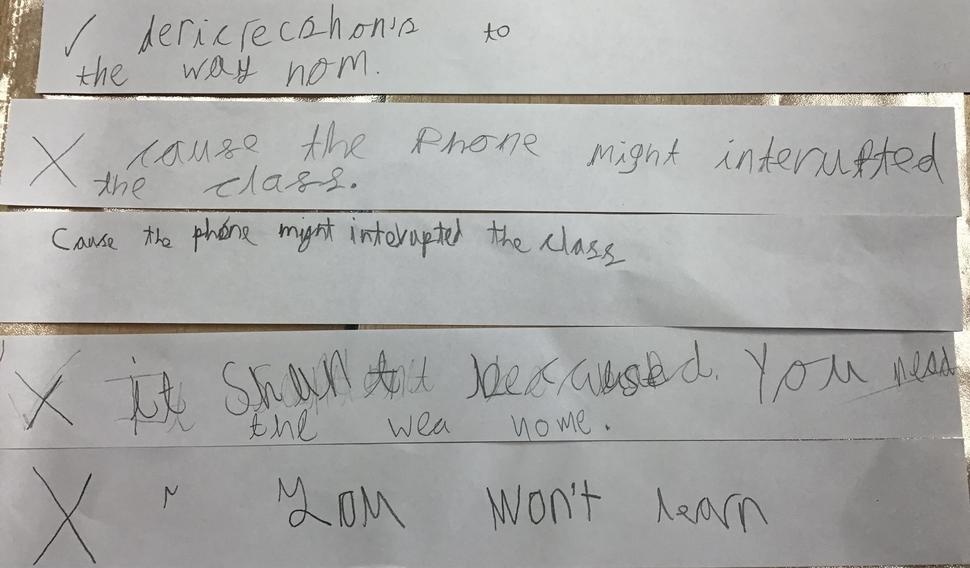 ✓ dericrecahon's to
the way nom.
X cause the Phone might interupted
the class.
Cause the phone might interupted the class
X it becaused. You need
the wea home.
X You won't learn